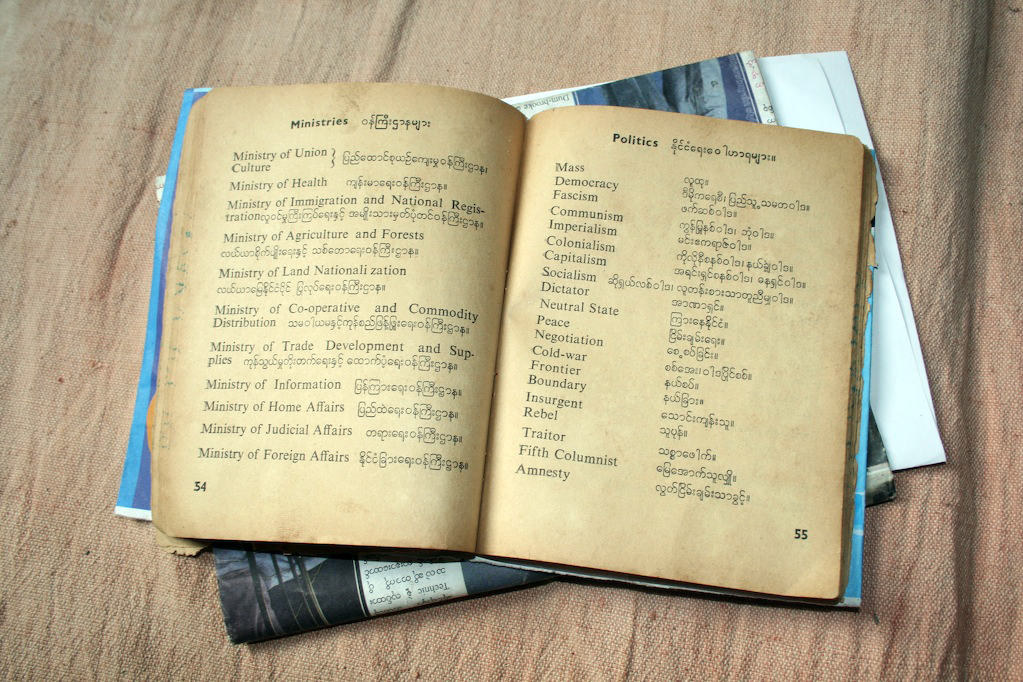 Ministries ဝန်ကြီးဌာနများ
Ministry of Union
Culture } ပြည်ထောင်စုယဉ်ကျေးမှုဝန်ကြီးဌာန၊
Ministry of Health ကျန်းမာရေးဝန်ကြီးဌာန။
Ministry of Immigration and National Regis-
trationလူဝင်မှုကြီးကြပ်ရေးနှင့် အမျိုးသားမှတ်ပုံတင်ဝန်ကြီးဌာန။
Ministry of Agriculture and Forests
လယ်ယာစိုက်ပျိုးရေးနှင့် သစ်တောရေးဝန်ကြီးဌာန။
Ministry of Land Nationali zation
လယ်ယာမြေနိုင်ငံပိုင် ပြုလုပ်ရေးဝန်ကြီးဌာန။
Ministry of Co-operative and Commodity
Distribution သမဝါယမနှင့်ကုန်စည်ဖြန့်ဖြူးရေးဝန်ကြီးဌာန။
Ministry of Trade Development and Sup-
plies ကုန်သွယ်မှုတိုးတက်ရေးနှင့် ထောက်ပံ့ရေးဝန်ကြီးဌာန။
Ministry of Information ပြန်ကြားရေးဝန်ကြီးဌာန။
Ministry of Home Affairs ပြည်ထဲရေးဝန်ကြီးဌာန။
Ministry of Judicial Affairs တရားရေးဝန်ကြီးဌာန။
Ministry of Foreign Affairs နိုင်ငံခြားရေးဝန်ကြီးဌာန။
54
Politics နိုင်ငံရေးဝေါဟာရများ။
Mass လူထု။
Democracy ဒီမိုကရေစီ၊ ပြည်သူ့သမတဝါဒ။
Fascism ဖက်ဆစ်ဝါဒ။
Communism ကွန်မြူနစ်ဝါဒ၊ ဘုံဝါဒ။
Imperialism မင်းဧကရာဇ်ဝါဒ။
Colonialism ကိုလိုနီစနစ်ဝါဒ၊ နယ်ချဲ့ဝါဒ။
Capitalism အရင်းရှင်စနစ်ဝါဒ၊ ဓနရှင်ဝါဒ။
Socialism ဆိုရှယ်လစ်ဝါဒ၊ လူတန်းစားသာတူညီမျှဝါဒ။
Dictator အာဏာရှင်။
Neutral State ကြားနေနိုင်ငံ။
Peace ငြိမ်းချမ်းရေး။
Negotiation စေ့စပ်ခြင်း။
Cold-war စစ်အေး၊ ဝါဒပြိုင်စစ်။
Frontier နယ်စပ်။
Boundary နယ်ခြား။
Insurgent သောင်းကျန်းသူ။
Rebel သူပုန်။
Traitor သစ္စာဖေါက်။
Fifth Columnist မြေအောက်သူလျှို။
Amnesty လွတ်ငြိမ်းချမ်းသာခွင့်။
55